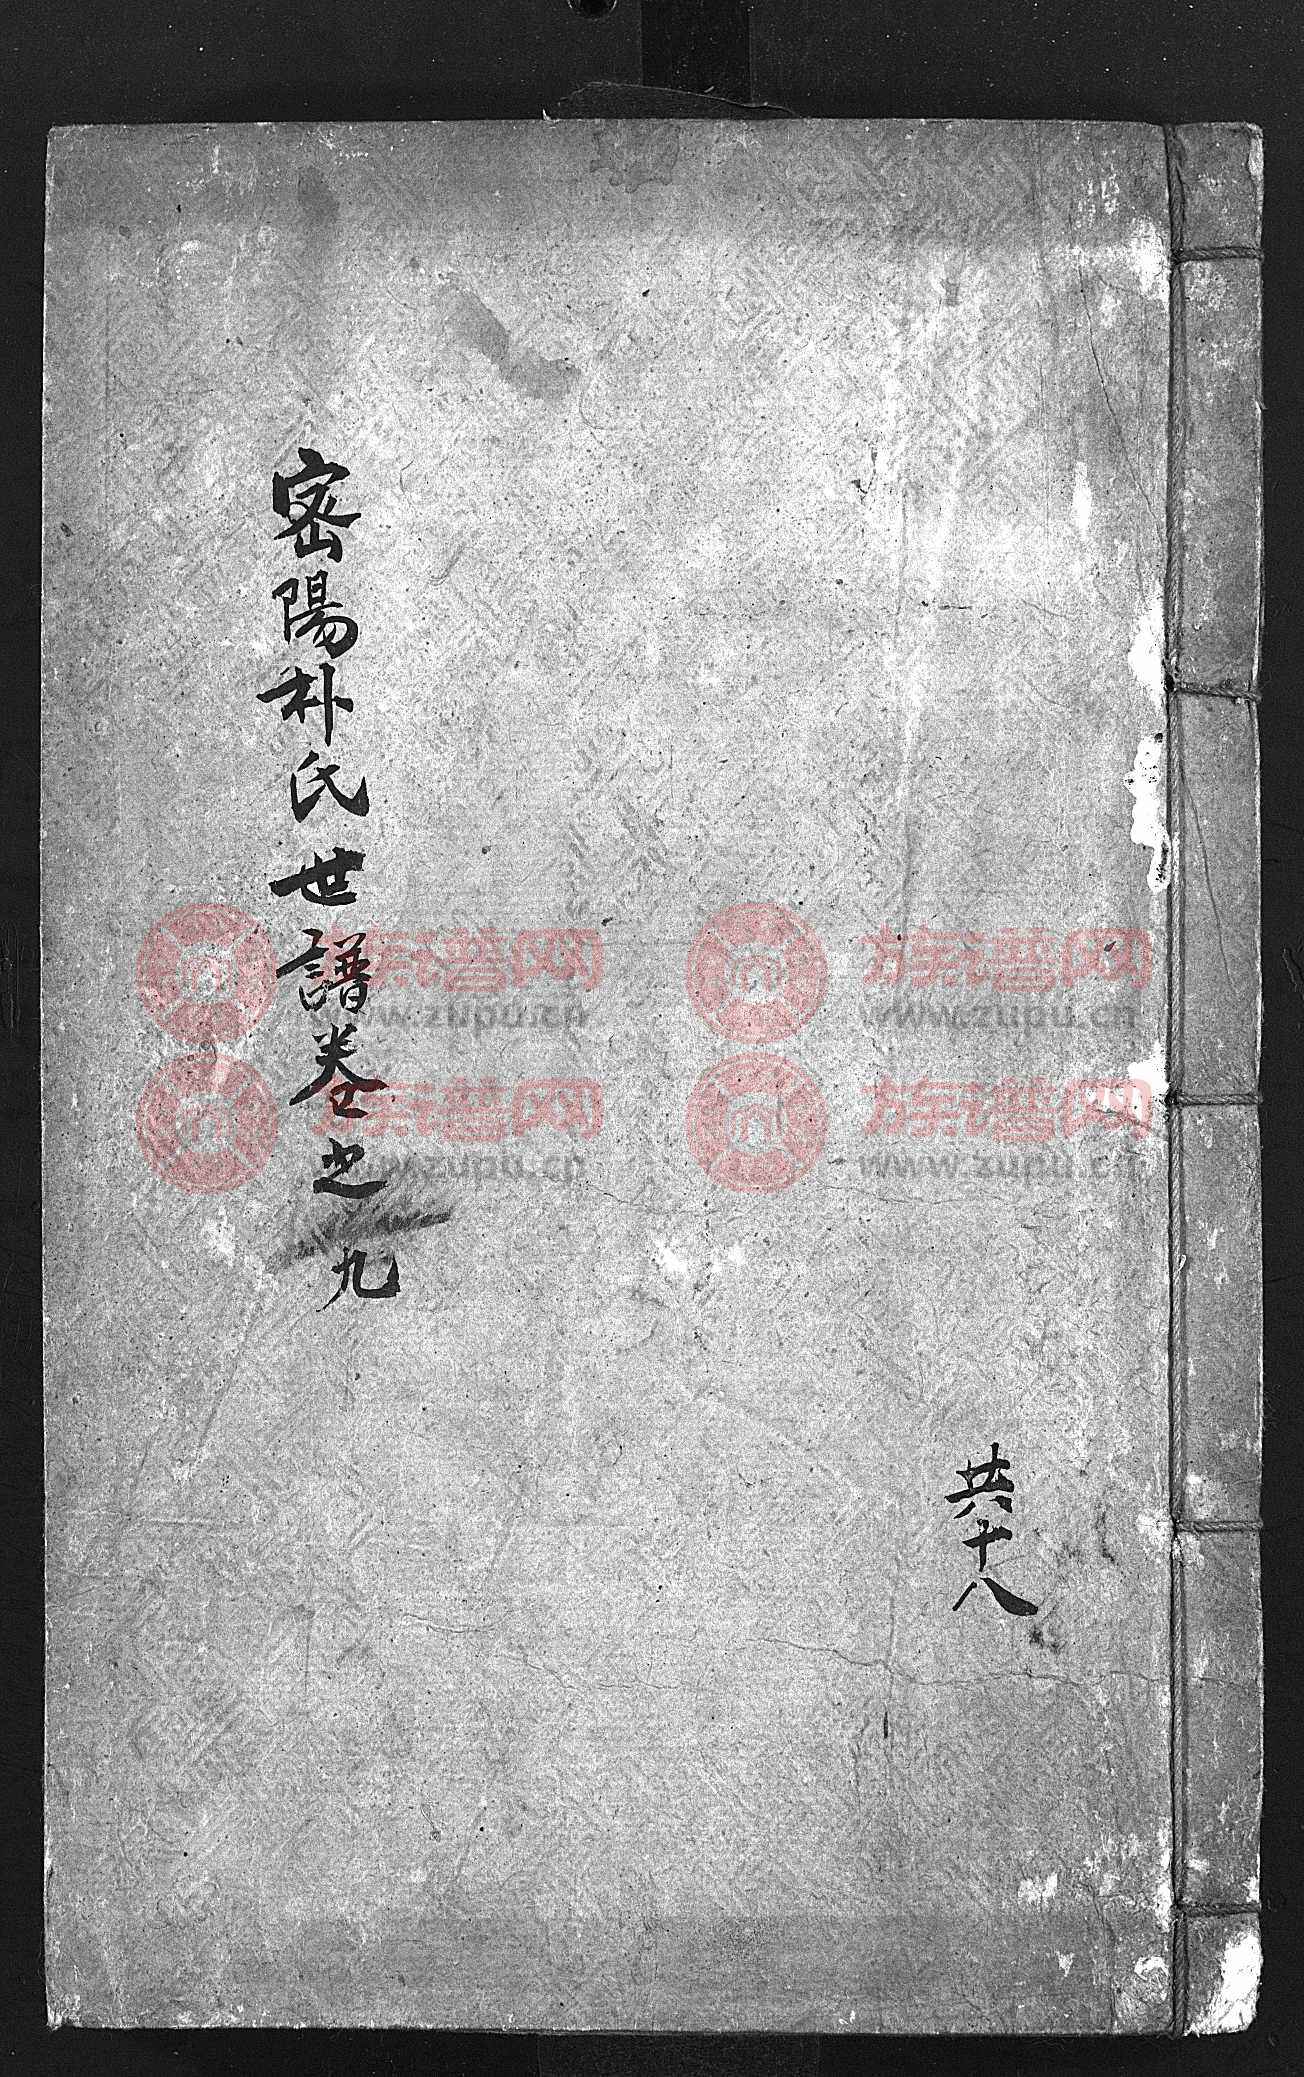 共十八
密陽朴氏世譜卷之九
族谱网
www.zupu.cn
族谱网
www.zupu.cn
族谱网
www.zupu.cn
族谱网
www.zupu.cn